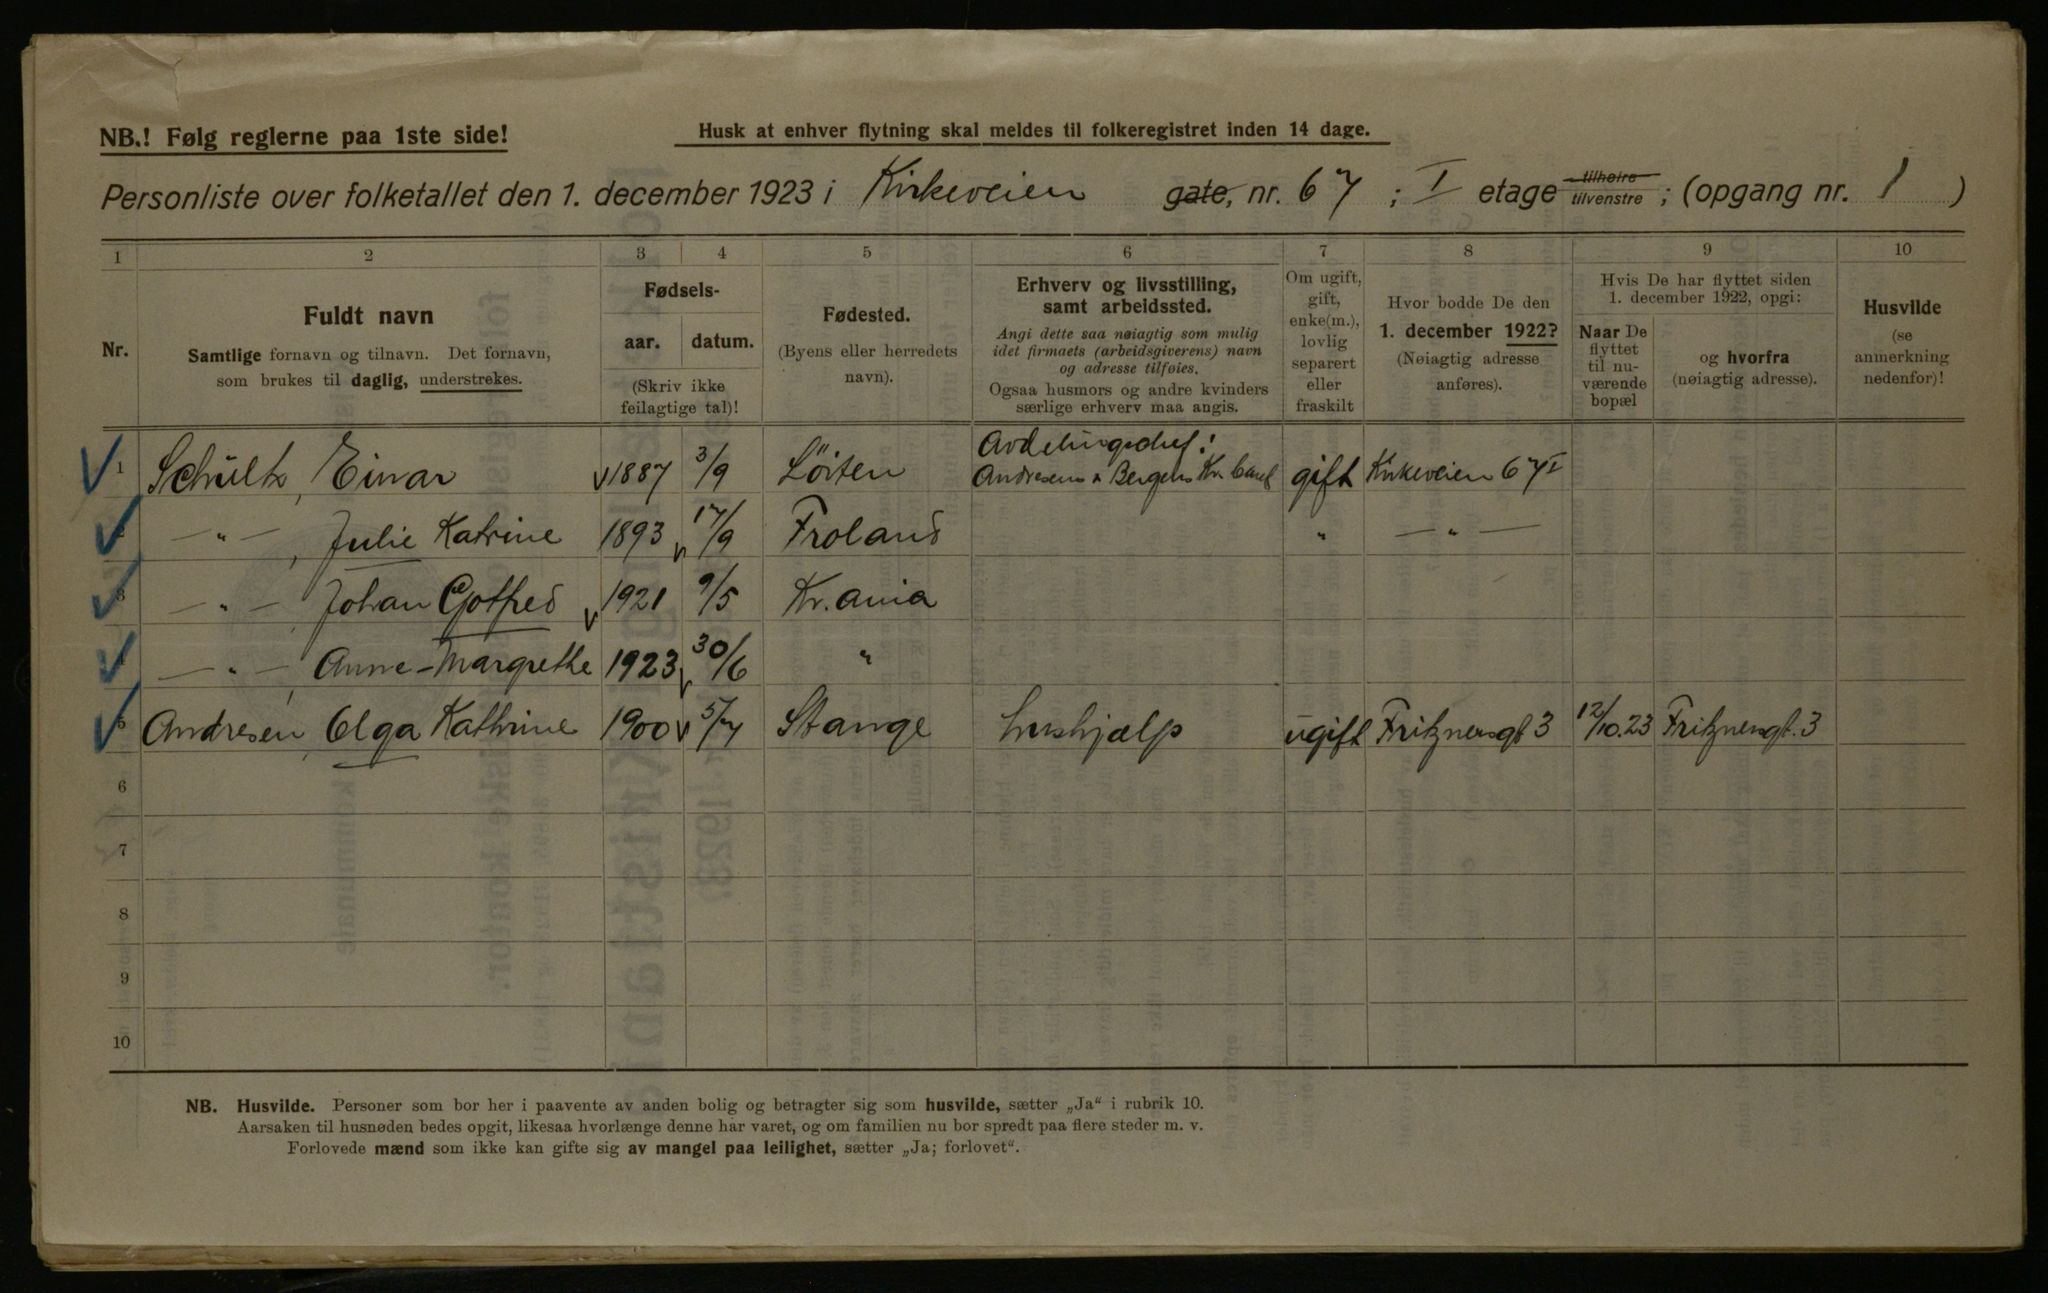 NB.! Følg reglerne paa 1ste side!
Husk at enhver flytning skal meldes til folkeregistret inden 14 dage.
Personliste over folketallet den 1. december 1923 i Kirkeveien gate, nr. 67 ; I etage tilhøire tilvenstre ; (opgang nr. 1 )
1 2 3 4 5 6 7 8 9 10
Nr.
Fuldt navn
Samtlige fornavn og tilnavn. Det fornavn,
som brukes til daglig, understrekes.
Fødsels-
aar. datum.
(Skriv ikke
feilagtige tal)!
Fødested.
(Byens eller herredets
navn).
Erhverv og livsstilling,
samt arbeidssted.
Angi dette saa nøiagtig som mulig
idet firmaets (arbeidsgiverens) navn
og adresse tilføies.
Ogsaa husmors og andre kvinders
særlige erhverv maa angis.
Om ugift,
gift,
enke(m.),
lovlig
separert
eller
fraskilt
Hvor bodde De den
1. december 1922?
(Nøiagtig adresse
anføres).
Hvis De har flyttet siden
1. december 1922, opgi:
Naar De
flyttet
til nu-
værende
bopæl
og hvorfra
(nøiagtig adresse).
Husvilde
(se
anmerkning
nedenfor)!
Avdelingschef:
1 Schultz, Einar 1887 3/9 Löiten Andresens & Bergens Kr. gift Kirkeveien 67 I
2 — " — , Julie Katrine 1893 17/9 Froland " — " —
3 — " — , Johan Gotfred 1921 9/5 Kr.ania
4 — " — , Anne-Margrethe 1923 30/6 "
5 Andresen, Olga Kathrine 1900 5/7 Stange hushjælp ugift Fritznersgt 3 12/10.23 Fritznersgt. 3
6
7
8
9
10
NB. Husvilde. Personer som bor her i paavente av anden bolig og betragter sig som husvilde, sætter „Ja“ i rubrik 10.
Aarsaken til husnøden bedes opgit, likesaa hvorlænge denne har varet, og om familien nu bor spredt paa flere steder m. v.
Forlovede mænd som ikke kan gifte sig av mangel paa leilighet, sætter „Ja; forlovet“.